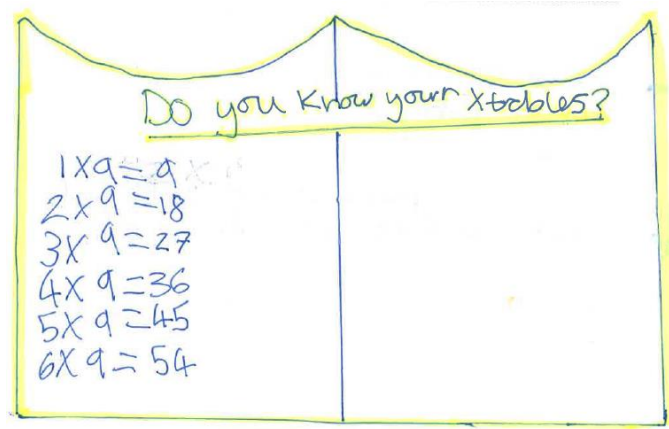 Do you know your xtables?
1x9=9
2x9=18
3x9=27
4x9=36
5x9=45
6x9=54